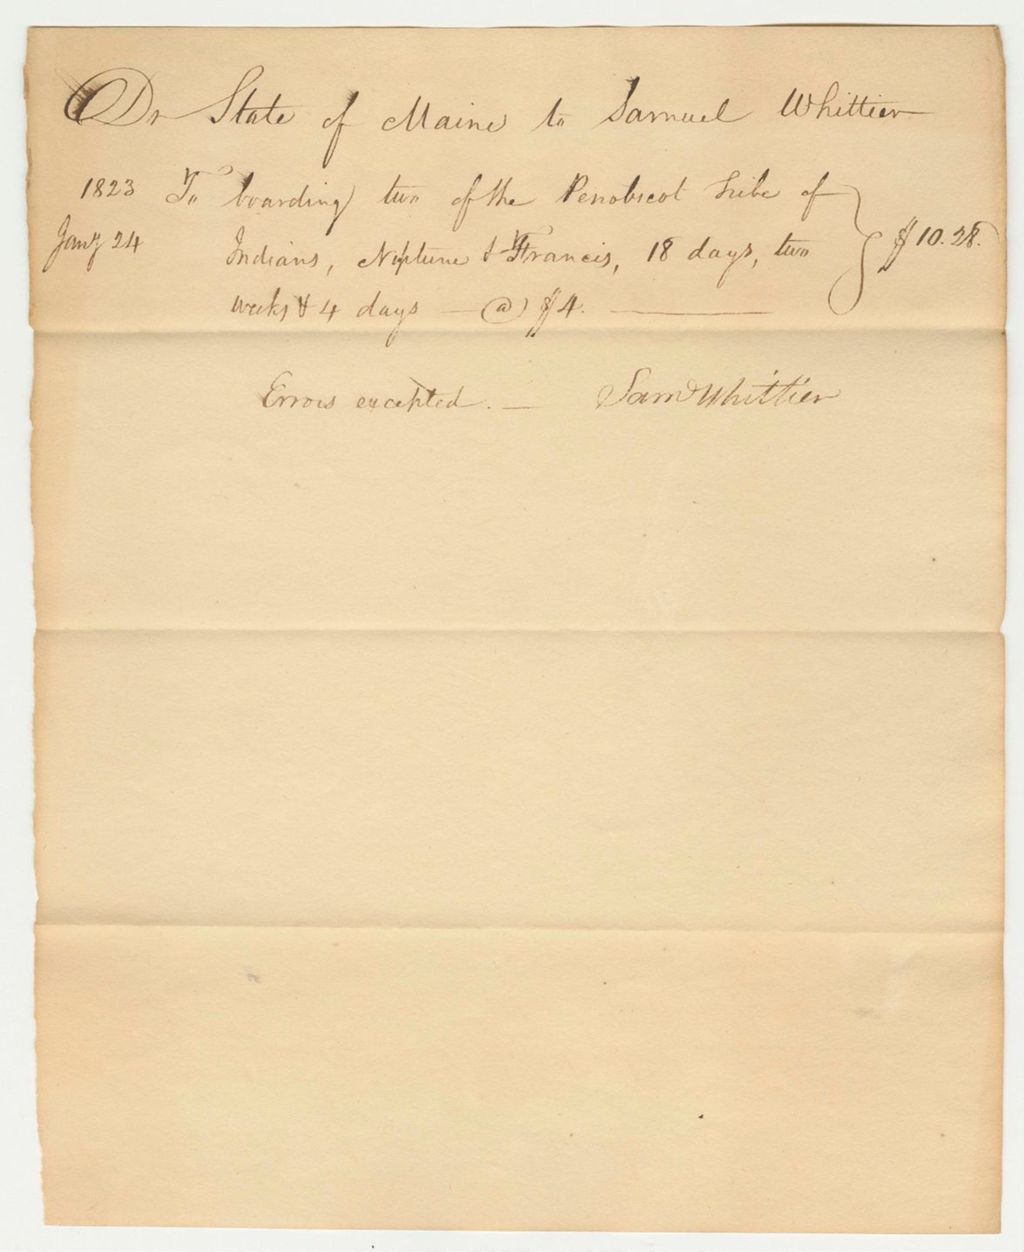 Dr State of Maine to Samuel Whittier
1823 To boarding two of the Penobscot tribe of
Jany 24 Indians, Neptune & Francis, 18 days, two } $10.28.
weeks & 4 days — @ $4. —
Errors excepted. — Saml Whittier